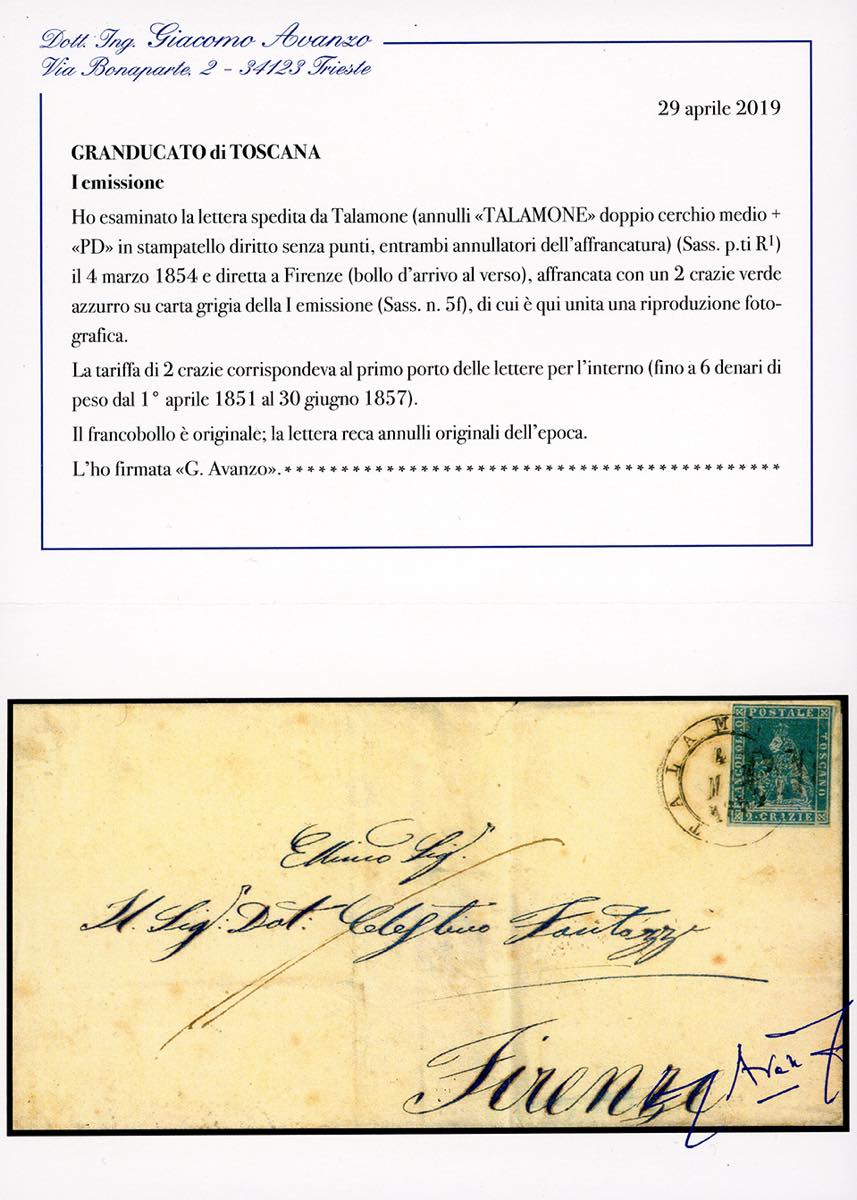 Dott. Ing. Giacomo Avanzo
Via Bonaparte, 2 - 34123 Trieste
29 aprile 2019
GRANDUCATO di TOSCANA
I emissione
Ho esaminato la lettera spedita da Talamone (annulli «TALAMONE» doppio cerchio medio +
«PD» in stampatello diritto senza punti, entrambi annullatori dell'affrancatura) (Sass. p.ti R¹)
il 4 marzo 1854 e diretta a Firenze (bollo d'arrivo al verso), affrancata con un 2 crazie verde
azzurro su carta grigia della I emissione (Sass. n. 5f), di cui è qui unita una riproduzione foto-
grafica.
La tariffa di 2 crazie corrispondeva al primo porto delle lettere per l'interno (fino a 6 denari di
peso dal 1° aprile 1851 al 30 giugno 1857).
Il francobollo è originale; la lettera reca annulli originali dell'epoca.
L'ho firmata «G. Avanzo». ********************************************
POSTALE
FRANCOBOLLO
TOSCANO
2 CRAZIE
TALAM
4
Sig.
Il Sig. Dot. Celestino Fantozzi
Firenze